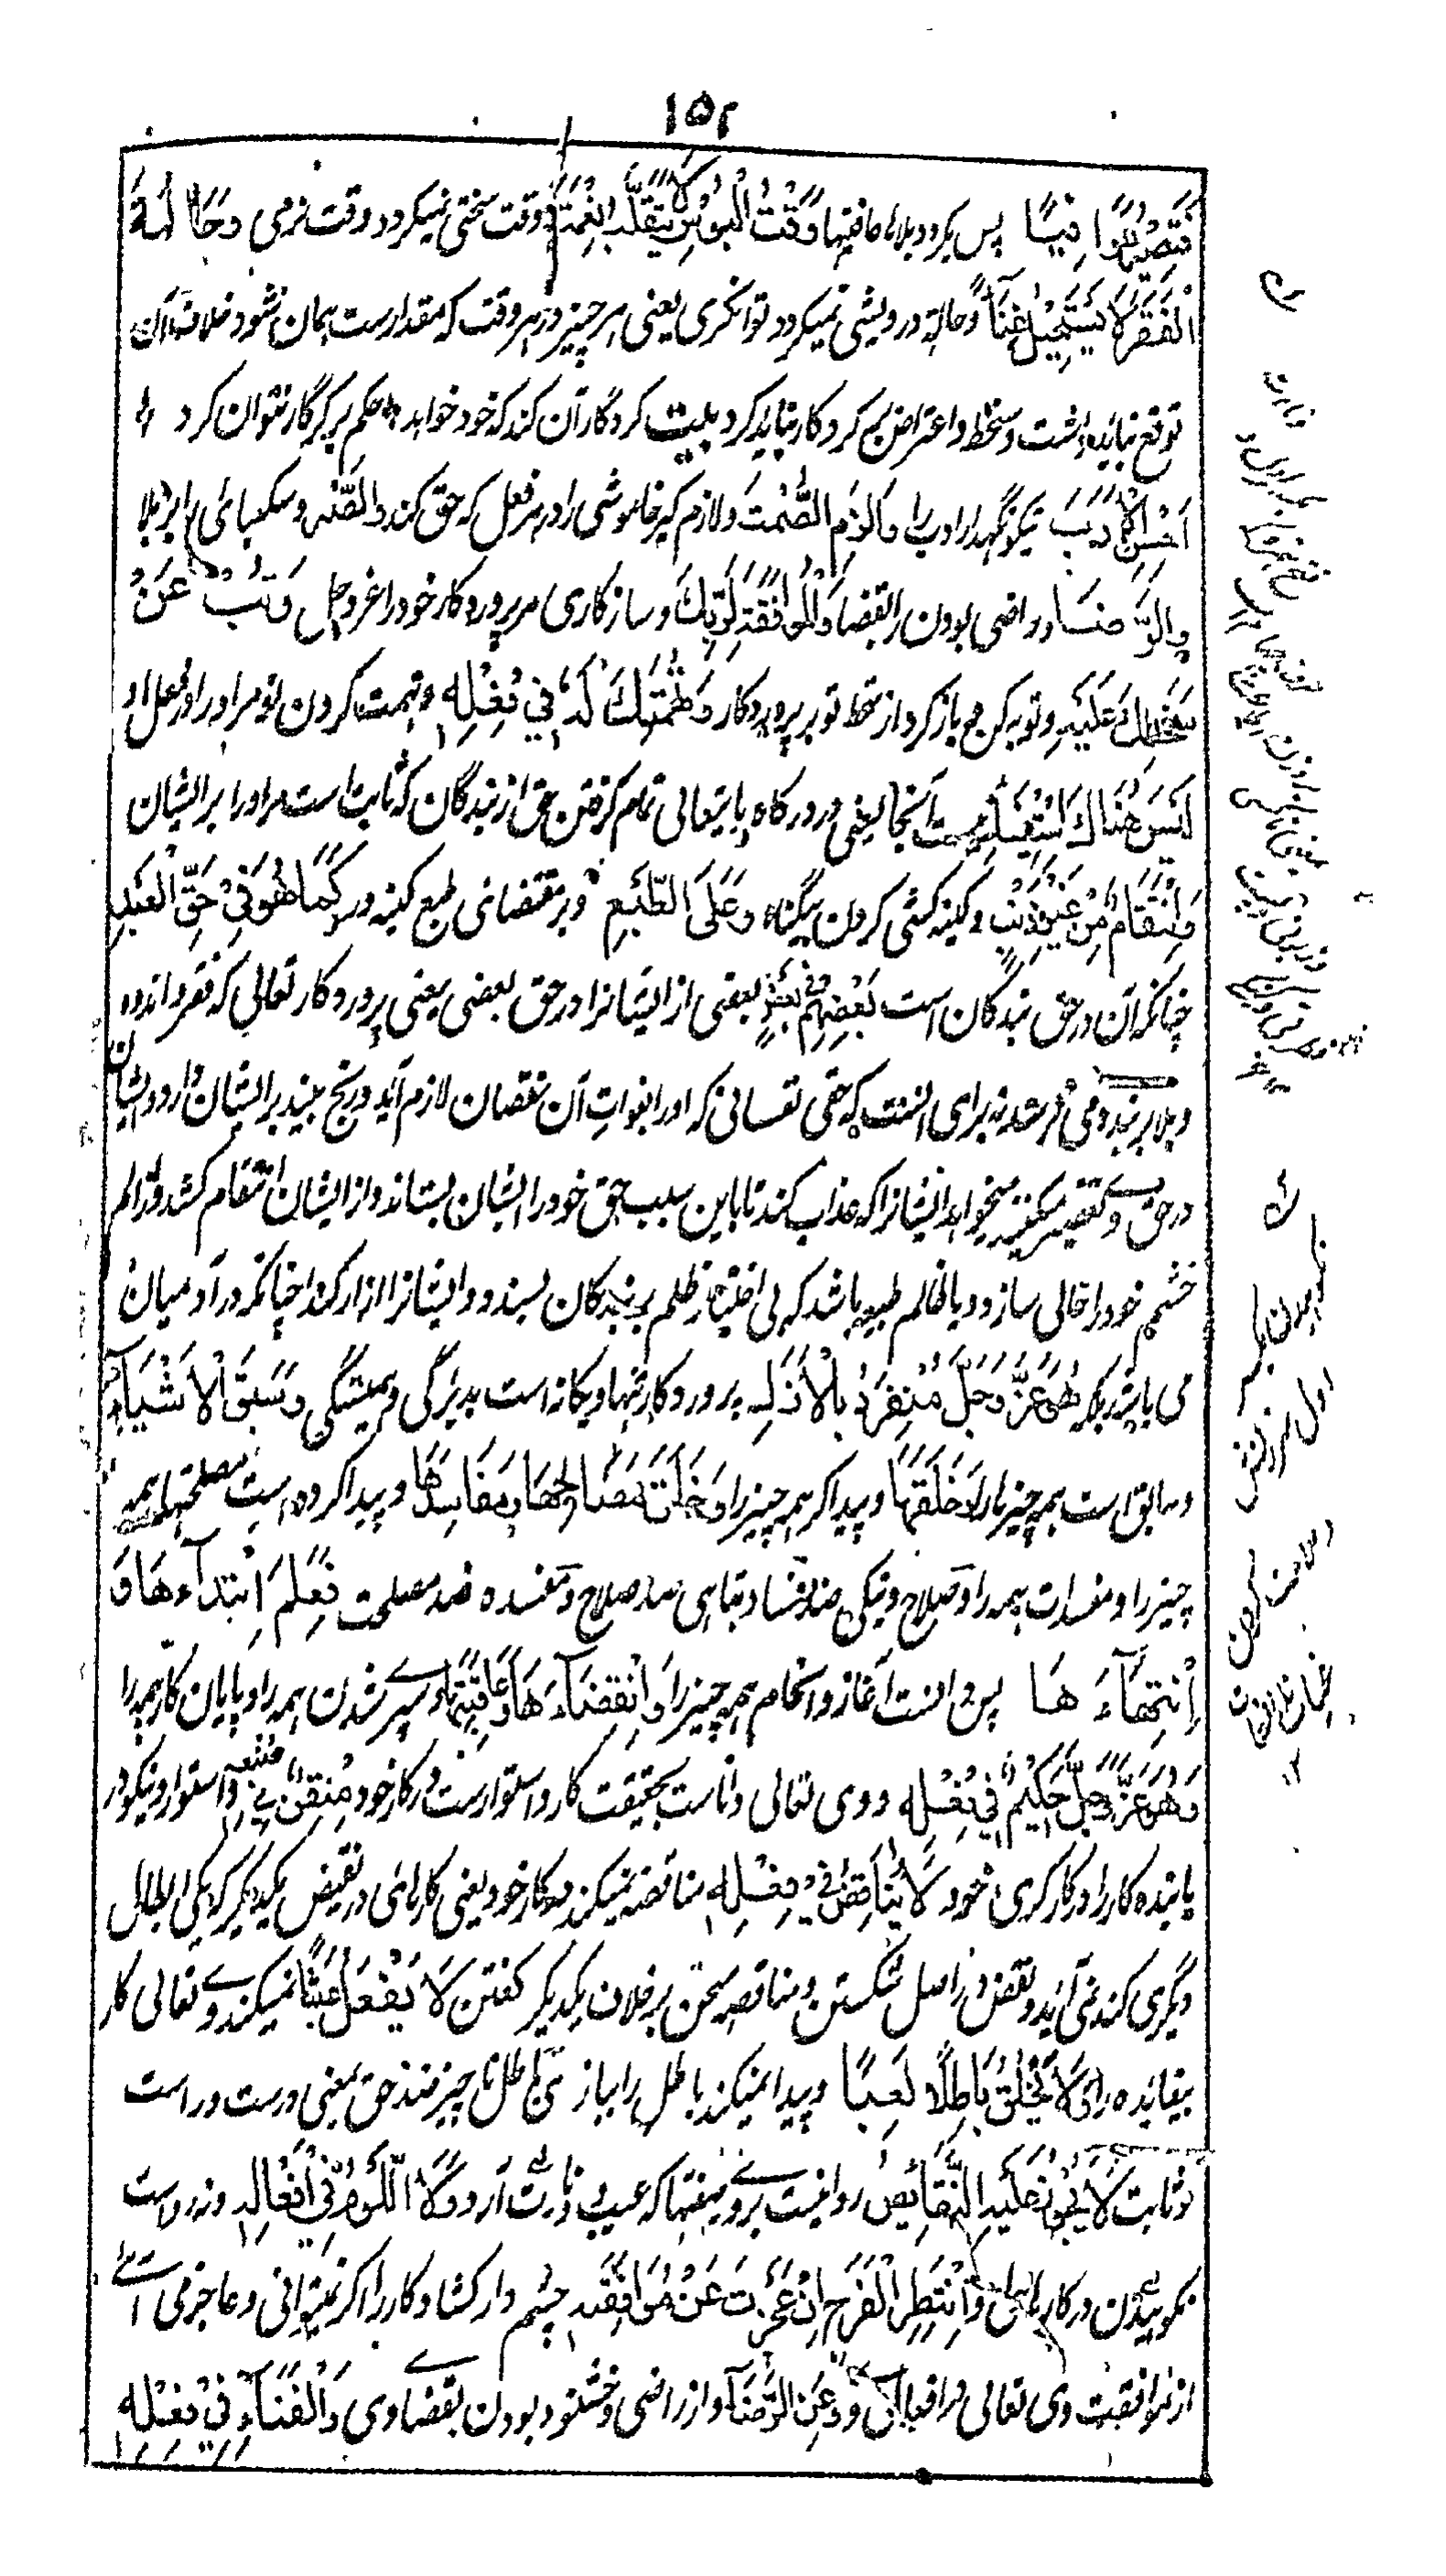 ۱۵۲
پس نگردد بلاها عافیتها وَقْتُ الْبُؤْسِ لَا يَتَقَلَّبُ نِعْمَةً وقت سختی نمیگردد وقت نرمی وَحَالَةُ
الْفَقْرِ لَا يَسْتَحِيلُ غِنًا و حالت درویشی نمیگردد توانگری یعنی هر چیز در هر وقت که مقدارست همان شود خلاف آن
توقع نباید داشت و سخط و اعتراض بر کردکار نباید کرد بیت کردگار آن کند که خود خواهد حکم بر کردگار نتوان کرد
اَحْسِنِ الْاَدَبَ نیکو نگهدار ادب را وَالْزَمِ الصَّمْتَ و لازم گیر خاموشی را در هر فعل که حق کند وَالصَّبْرَ و شکیبائی را بر بلا
وَالرِّضَا و راضی بودن را بقضا وَالْمُوَافَقَةَ لِرَبِّكَ و سازگاری مر پروردگار خود را عز و جل وَتُبْ عَنْ
سَخَطِكَ عَلَيْهِ و توبه کن و بازگرد از سخط تو بر پروردکار وَتُهْمَتِكَ لَهُ فِي فِعْلِهِ و تهمت کردن تو مر او را در فعل او
لَيْسَ هُنَاكَ اسْتِيفَاءٌ نیست آنجا یعنی در درگاه باریتعالی تمام گرفتن حق از بندگان که ثابت است مر او را بر ایشان
وَانْتِقَامٌ مِنْ غَيْرِ ذَنْبٍ و کینه کشی کردن بیگناه وَعَلَى الطَّبْعِ و بر مقتضای طبع کینه ور كَمَا هُوَ فِيْ حَقِّ الْعَبْدِ
چنانکه آن در حق بندگان است بَعْضِهِمْ فِي بَعْضٍ بعضی از ایشانرا در حق بعضی یعنی پروردکار تعالی که فقر و اندوه
و بلا بر بنده می فرستد نه برای آنست که حقی نفسانی که او را بفوات آن نقصان لازم آید و رنج بیند بر ایشان دارد و ایشان
در حق وے تقصیر میکنند میخواهد ایشانرا که عذاب کند تا باین سبب حق خود را از ایشان بستاند و از ایشان انتقام کشد و از الم
خشم خود را خالی سازد و یا ظالم طبع باشد که بی اختیار ظلم بر بندگان پسندد و ایشانرا آزار کند چنانکه در آدمیان
می باشد بلکه هُوَ عَزَّ وَجَلَّ مُنْفَرِدٌ بِالْاَزَلِ پروردکار تنها و یگانه است بدیرگی و همیشگی وَسَبَقَ الْاَشْيَاءَ
و سابق است همه چیز ها را خَلَقَهَا و پیدا کرد همه چیز را وَخَلَقَ مَصَالِحَهَا وَمَفَاسِدَهَا و پیدا کرده است مصلحتهای همه
چیز را و مفسدات همه را و صلاح و نیکی ضد فساد و تباهی ضد صلاح و مفسده ضد مصلحت فَعَلِمَ اِبْتِدَآءَهَا وَ
اِنْتِهَآءَهَا پس دانست آغاز و انجام همه چیز را وَانْقِضَآءَهَا وَعَاقِبَتَهَا و سپرے شدن همه را و پایان کار همه را
وَهُوَ عَزَّ وَجَلَّ حَكِيْمٌ فِيْ فِعْلِهِ و وی تعالی داناست بحقیقت کار و استوارست در کار خود مُتْقِنٌ فِيْ صُنْعِهِ و استوار و نیکو در
یابنده کار را در کارگری خود لَا يُنَاقِضُ فِيْ فِعْلِهِ مناقضه نمیکند در کار خود یعنی کارهای در نقیض یکدیگر که یکی ابطال
دیگری کند نمی آید و نقض در اصل شکستن و مناقضه سخن بر خلاف یکدیگر گفتن لَا يَفْعَلُ عَبَثًا نمیکند وے تعالی کار
بیفائده را وَلَا يَخْلُقُ بَاطِلًا لَعِبًا و پیدا نمیکند باطل را ببازی باطل ناچیز ضد حق بمعنی درست و راست
و ثابت لَا يَجُوْزُ عَلَيْهِ النَّقَائِصُ روا نیست بر وے صفتها که عیب و نقصان آرد وَلَا اللَّوْمُ فِيْ اَفْعَالِهِ و نه رواست
نکوهیدن در کارهای وی وَانْتَظِرِ الْفَرَجَ اِنْ عَجَزْتَ عَنْ مُوَافَقَتِهِ چشم دار کشاد کار را اگر نمیتوانی و عاجز می آئے
از موافقت وی تعالی در افعال وی وَعَنِ الرِّضَآءِ و از راضی و خشنود بودن بقضاء وی وَالْفَنَآءِ فِيْ فِعْلِهِ